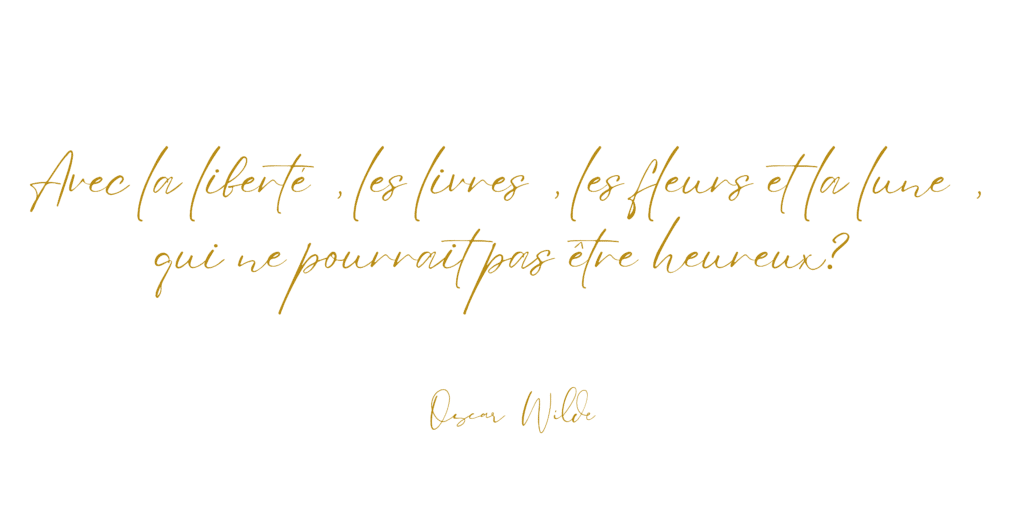 Avec la liberté , les livres , les fleurs et la lune ,
qui ne pourrait pas être heureux?
Oscar Wilde